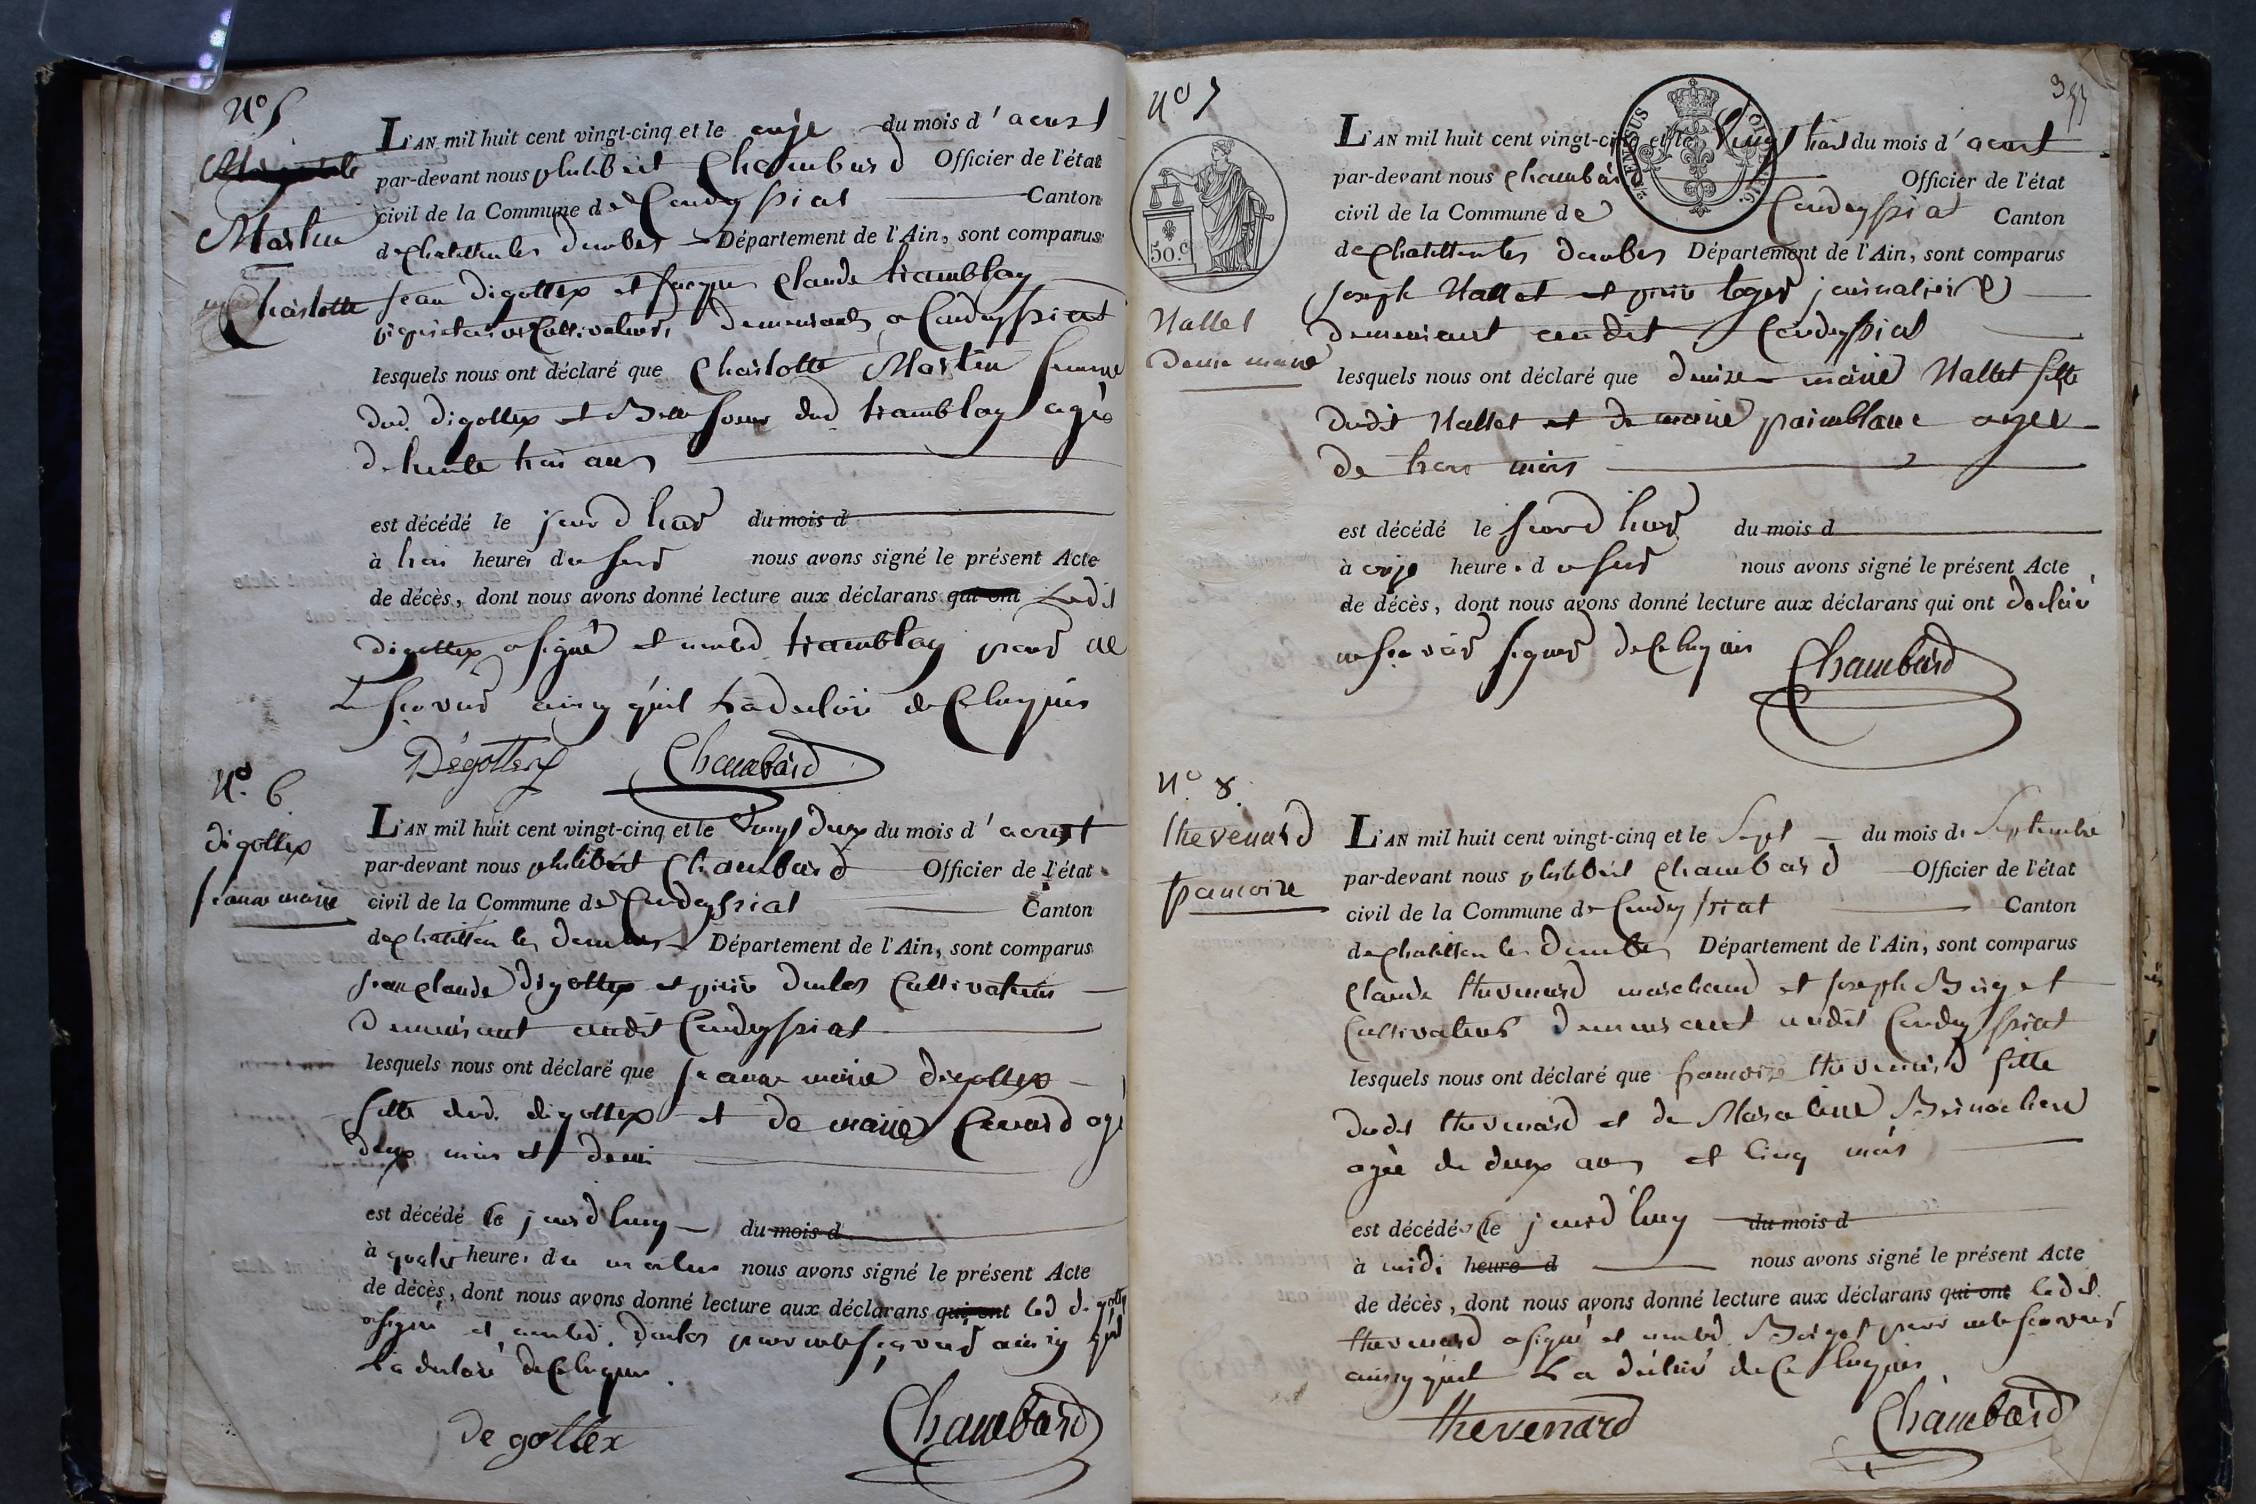 N° 5
Martin
Charlotte
L'AN mil huit cent vingt-cinq et le onze du mois d'aoust
par-devant nous philibert Chambard Officier de l'état
civil de la Commune de Condeyssiat Canton
de chatillon les dombes Département de l'Ain, sont comparus
jean digottex et jacques claude tramblay
propriétaires Cultivateurs demeurants a Condeyssiat
lesquels nous ont déclaré que Charlotte Martin femme
dud. digottex et Belle soeur dud tramblay agée
de trente trois ans
est décédé le jourd hier du mois d
à trois heures du soir nous avons signé le présent Acte
de décès, dont nous avons donné lecture aux déclarans qui ont Ledit
digottex a signé et nonled tramblay pour ne
le scavoir ainsy qu'il l'a declaré de Ce Requis
Dégottex Chambard
N° 6
digottex
jeanne marie
L'AN mil huit cent vingt-cinq et le vingt deux du mois d'aoust
par-devant nous philibert Chambard Officier de l'état
civil de la Commune de Condeyssiat Canton
de chatillon les dombes Département de l'Ain, sont comparus
jean claude digottex et pierre Cultivateurs
demeurant audit Condeyssiat
lesquels nous ont déclaré que jeanne marie digottex
fille dud. digottex et de marie agé
deux mois et demi
est décédé le jourd huy du mois d
à quatre heures du matin nous avons signé le présent Acte
de décès, dont nous avons donné lecture aux déclarans qui ont led digottex
a signé et nonled. pour ne le scavoir ainsy qu'il
l'a declaré de Ce Requis.
de gottex Chambard
N° 7
355
50.c
Nallet
Denise marie
L'AN mil huit cent vingt-cinq et le vingt trois du mois d'aoust
par-devant nous chambard Officier de l'état
civil de la Commune de Condeyssiat Canton
de chatillon les dombes Département de l'Ain, sont comparus
joseph Nallet et pierre journaliers
demeurant audit Condeyssiat
lesquels nous ont déclaré que denise marie Nallet fille
dudit Nallet et de marie painblanc agée
de trois mois
est décédé le jourd hier du mois d
à onze heures du soir nous avons signé le présent Acte
de décès, dont nous avons donné lecture aux déclarans qui ont declaré
ne scavoir signer de Ce Requis Chambard
N° 8.
thevenard
francoise
L'AN mil huit cent vingt-cinq et le Sept du mois de Septembre
par-devant nous philibert chambard Officier de l'état
civil de la Commune de Condeyssiat Canton
de chatillon les dombes Département de l'Ain, sont comparus
Claude thevenard marchand et joseph Berget
Cultivateurs demeurant audit Condeyssiat
lesquels nous ont déclaré que francoise thevenard fille
dudit thevenard et de
agée de deux ans et Cinq mois
est décédé le jourd'huy du mois d
à midi heure d nous avons signé le présent Acte
de décès, dont nous avons donné lecture aux déclarans qui ont ledit
thevenard a signé et nonled. Berget pour ne le scavoir
ainsy qu'il l'a déclaré de Ce Requis
thevenard Chambard